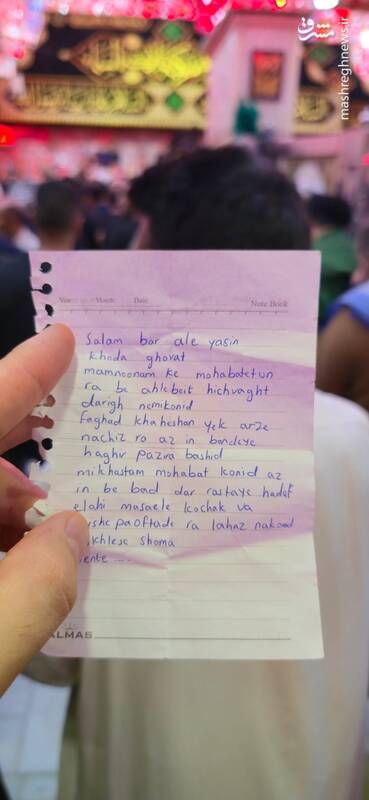 مشرق
mashreghnews.ir
Year: Month: Date: Note Book
Salam bar ale yasin
khoda ghovat
mamnoonam ke mohabatetun
ra be ahlebeit hichvaght
darigh nemikonid
Faghad khaheshan yek arze
nachiz ro az in bandeye
haghir pazira bashid
mikhastam mohabat konid az
in be bad dar rastaye hadaf
elahi masaele kochak va
pa oftade ra lahaz nakonid
shoma
ALMAS